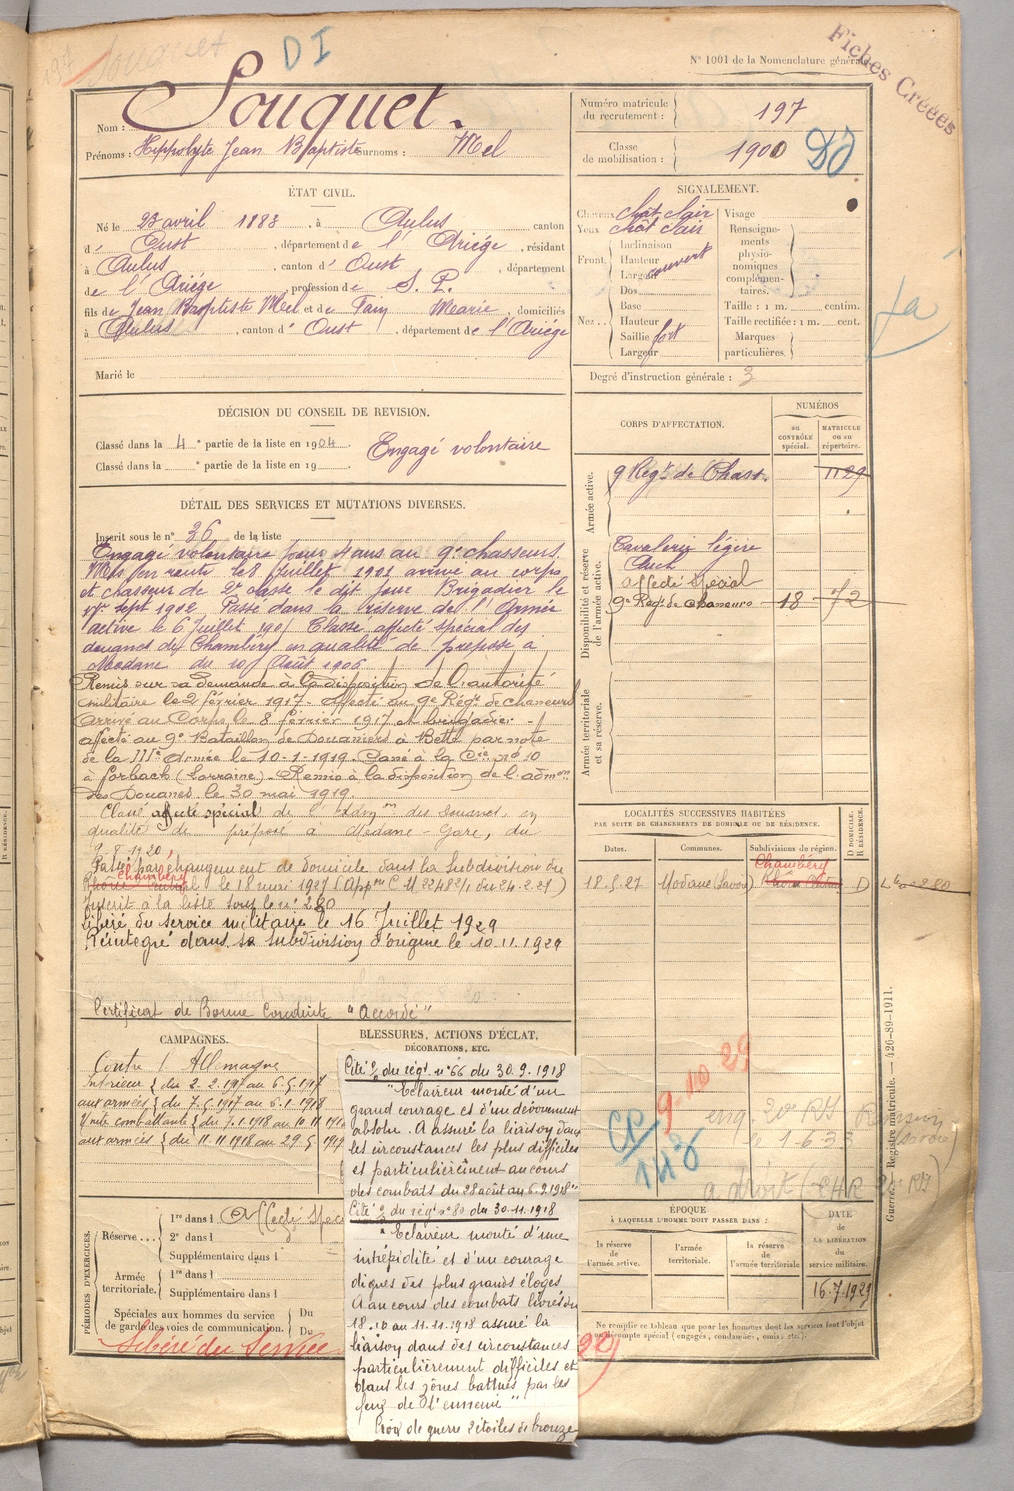 197 Souquet
D I
N° 1001 de la Nomenclature générale
Fiches Créées
Nom : Souquet.
Prénoms : Hippolyte Jean Baptiste Surnoms : Mel
Numéro matricule du recrutement : 197
Classe de mobilisation : 1900
ÉTAT CIVIL.
Né le 23 avril 1883, à Aulus canton
d' Oust, département de l'Ariége, résidant
à Aulus, canton d' Oust, département
de l'Ariége, profession de S. P.
fils de Jean Baptiste Mel et de Fain Marie, domiciliés
à Aulus, canton d' Oust, département de l'Ariége
Marié le
SIGNALEMENT.
Cheveux chât clair
Yeux chât clair
Front.
Inclinaison
Hauteur
Largeur couvert
Nez ..
Dos
Base
Hauteur
Saillie fort
Largeur
Visage
Renseignements physionomiques complémentaires.
Taille : 1 m. centim.
Taille rectifiée : 1 m. cent.
Marques particulières.
Degré d'instruction générale : 3
DÉCISION DU CONSEIL DE REVISION.
Classé dans la 4e partie de la liste en 1904.
Classé dans la e partie de la liste en 19
Engagé volontaire
CORPS D'AFFECTATION.
NUMÉROS
au CONTRÔLE spécial.
MATRICULE ou au répertoire.
Armée active.
9 Regt de Chass. 1129
Disponibilité et réserve de l'armée active.
Cavalerie légère
Auch
affecté Spécial
9e Regt de chasseurs 18 72
Armée territoriale et sa réserve.
DÉTAIL DES SERVICES ET MUTATIONS DIVERSES.
Inscrit sous le n° 36 de la liste
Engagé volontaire pour 4 ans au 9e chasseurs
Mis en route le 8 Juillet 1901 arrivé au corps
et chasseur de 2e classe le dit jour Brigadier le
sept 1902 Passé dans la réserve de l'Armée
active le 6 Juillet 190 Classé affecté spécial des
douanes de Chambéry en qualité de préposé à
Modane du 10 Août 1906
Remis sur sa demande à la disposition de l'autorité
militaire le 2 février 1917. affecté au 9e Régt de chasseurs
Arrivé au Corps le 8 février 1917 brigadier.
affecté au 9e Bataillon de Douaniers à Bette par note
de la IIIe Armée le 10-1-1919. Passé à la Cie n° 10
à forbach (Lorraine). Remis à la disposition de l'admon
des Douanes le 30 mai 1919.
Classé affecté spécial de l'Admon des Douanes, en
qualité de préposé à Modane-Gare, du
9.8.1920
Passé par changement de domicile dans la Subdivision du
Chambéry
Rhône le 18 mai 1927 (Appon C M 22482/1 du 24.2.27)
Inscrit à la liste sous le n° 280
Libéré du service militaire le 16 Juillet 1929
Réintégré dans sa subdivision d'origine le 10.11.1929
Certificat de Bonne Conduite "Accordé"
LOCALITÉS SUCCESSIVES HABITÉES
PAR SUITE DE CHANGEMENTS DE DOMICILE OU DE RÉSIDENCE.
Dates.
Communes.
Subdivisions de région.
D DOMICILE. R RÉSIDENCE.
Chambéry
18.5.27 Modane (Savoie) Rhône D 280
9.10.29
CP
143
eng. 20e RI
le 1.6.33
CAMPAGNES.
Contre l'Allemagne
Intérieur { du 2.2.1917 au 6.5.1917
aux armées { du 7.5.1917 au 6.1.1918
Unité combattante { du 7.1.1918 au 10.11.191
aux armées { du 11.11.1918 au 29.5.1919
BLESSURES, ACTIONS D'ÉCLAT,
DÉCORATIONS, ETC.
Cité O. du régt n° 66 du 30.9.1918
"Eclaireur monté d'un
grand courage et d'un dévouement
absolu. A assuré la liaison dans
les circonstances les plus difficiles
et particulièrement au cours
des combats du 28 août au 6.9.1918"
Cité O. du régt n° 80 du 30.11.1918
"Eclaireur monté d'une
intrépidité et d'un courage
dignes des plus grands éloges
A au cours des combats livrés du
18.10 au 11.11.1918 assuré la
liaison dans des circonstances
particulièrement difficiles et
dans les zônes battues par les
feux de l'ennemi"
Croix de guerre 2 étoiles de bronze
PÉRIODES D'EXERCICES.
Réserve ...
1re dans l Affecté Spéc
2e dans l
Supplémentaire dans l
Armée territoriale.
1re dans l
Supplémentaire dans l
Spéciales aux hommes du service de garde des voies de communication.
Du
Du
Libéré du Service
29)
ÉPOQUE
À LAQUELLE L'HOMME DOIT PASSER DANS :
la réserve de l'armée active.
l'armée territoriale.
la réserve de l'armée territoriale
DATE de LA LIBÉRATION du service militaire.
16.7.1929
Ne remplir ce tableau que pour les hommes dont les services font l'objet
d'un compte spécial (engagés, condamnés, omis, etc.).
Guerre. — Registre matricule. — 426-89-1911.